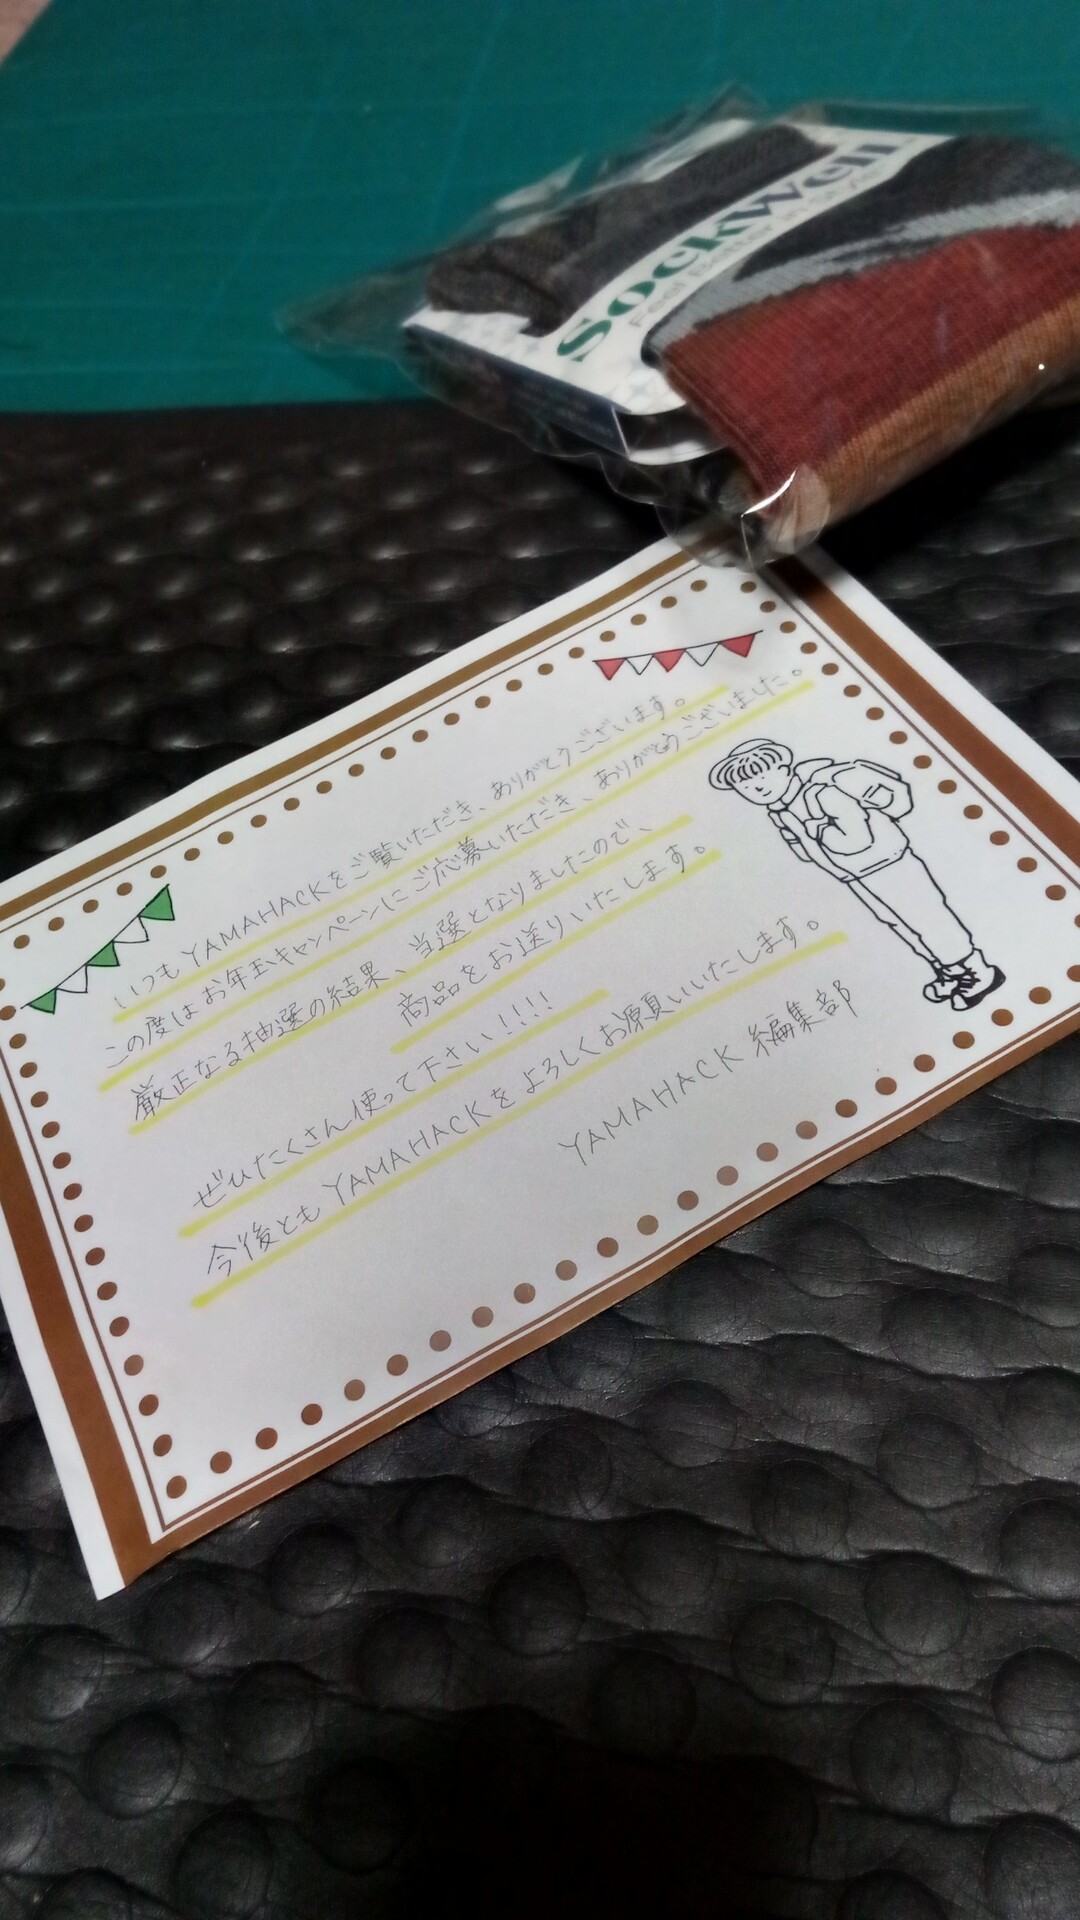 Sockwell
Feel Better
いつもYAMAHACKをご覧いただき、ありがとうございます。
この度はお年玉キャンペーンにご応募いただき、ありがとうございました。
厳正なる抽選の結果、当選となりましたので、
商品をお送りいたします。
ぜひたくさん使って下さい!!!!
今後とも YAMAHACKを よろしくお願いいたします。
YAMAHACK 編集部